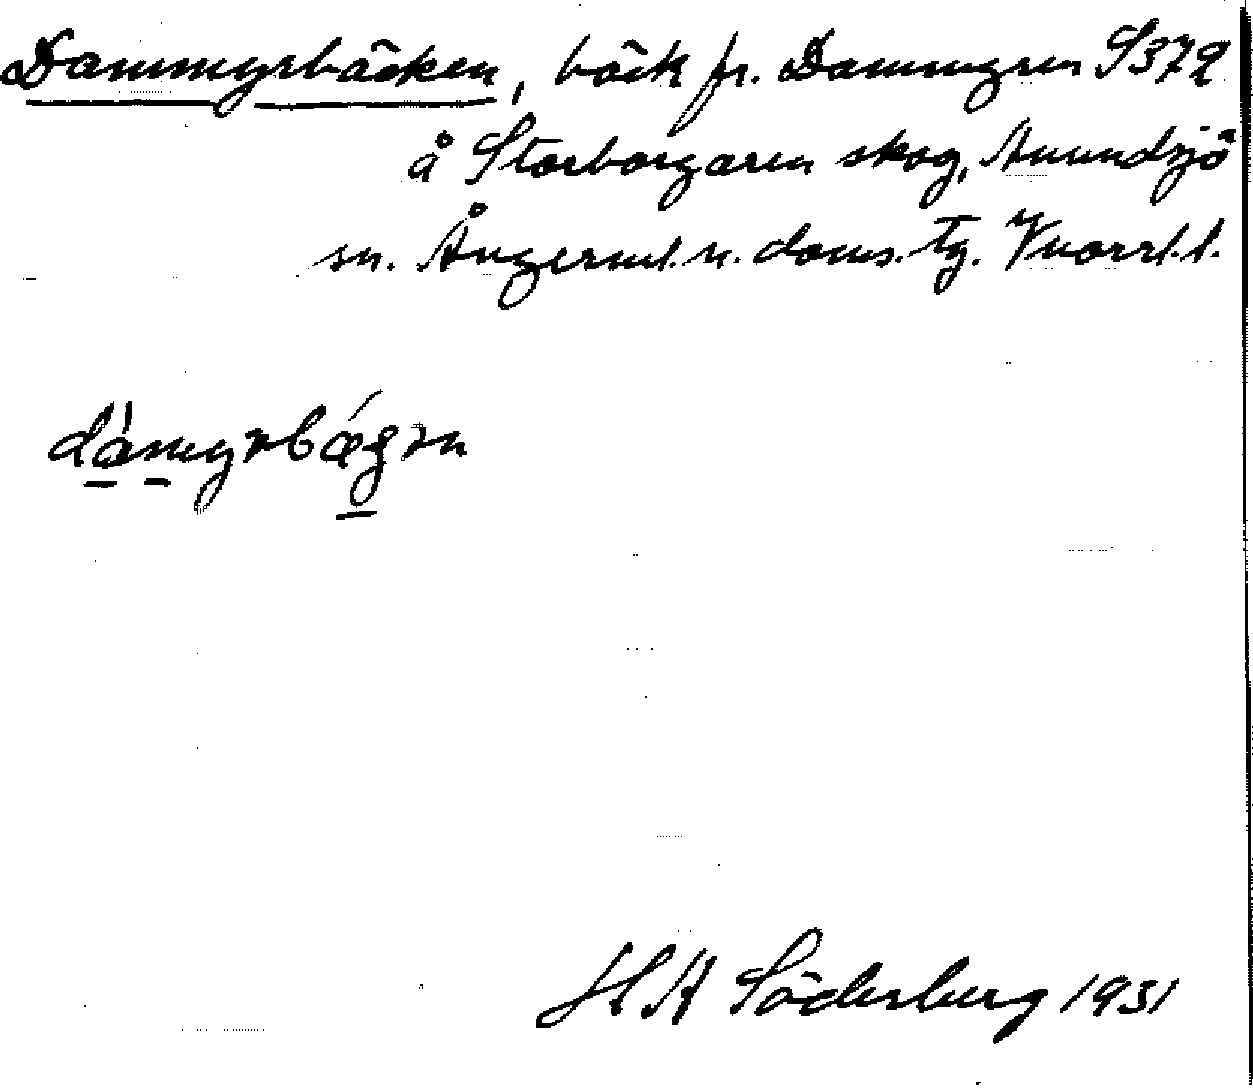 Dammyrbäcken, bäck fr. Dammyren S372
å Storborgaren skog, Anundsjö
sn. Ångerml. n. doms. tg. Vnorrl. l.
dámyrbǽgən
H A Söderberg 1931